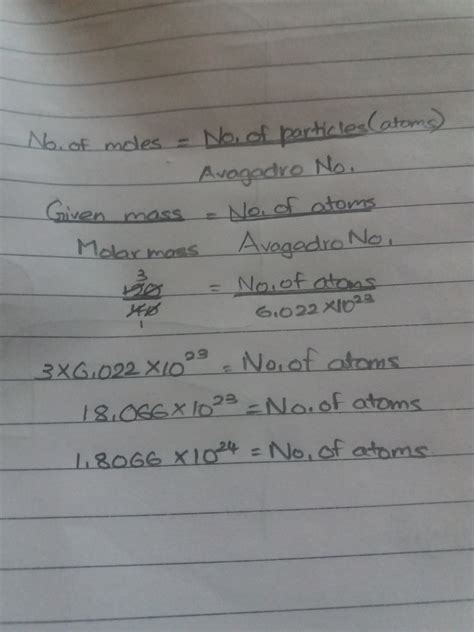 No. of moles = No. of particles(atoms)
Avagadro No.
Given mass = No. of atoms
Molar mass Avagedro No.
3
120 = No. of atoms
40 6.022×10²³
1
3×6.022×10²³ = No. of atoms
18.066×10²³ = No. of atoms
1.8066×10²⁴ = No. of atoms